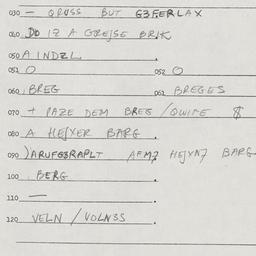 030 — QRUSS BUT G3FERLAX
040 DO IZ A GREJSE BRIK
050 A INDZL
051 O 052 O
060 BREG 061 BREGES
070 + PAZE DEM BREG / QWITE $
080 A HEJXER BARG
090 HEJXN7 BARG
100 BERG
110 —
120 VELN / VOLN3S